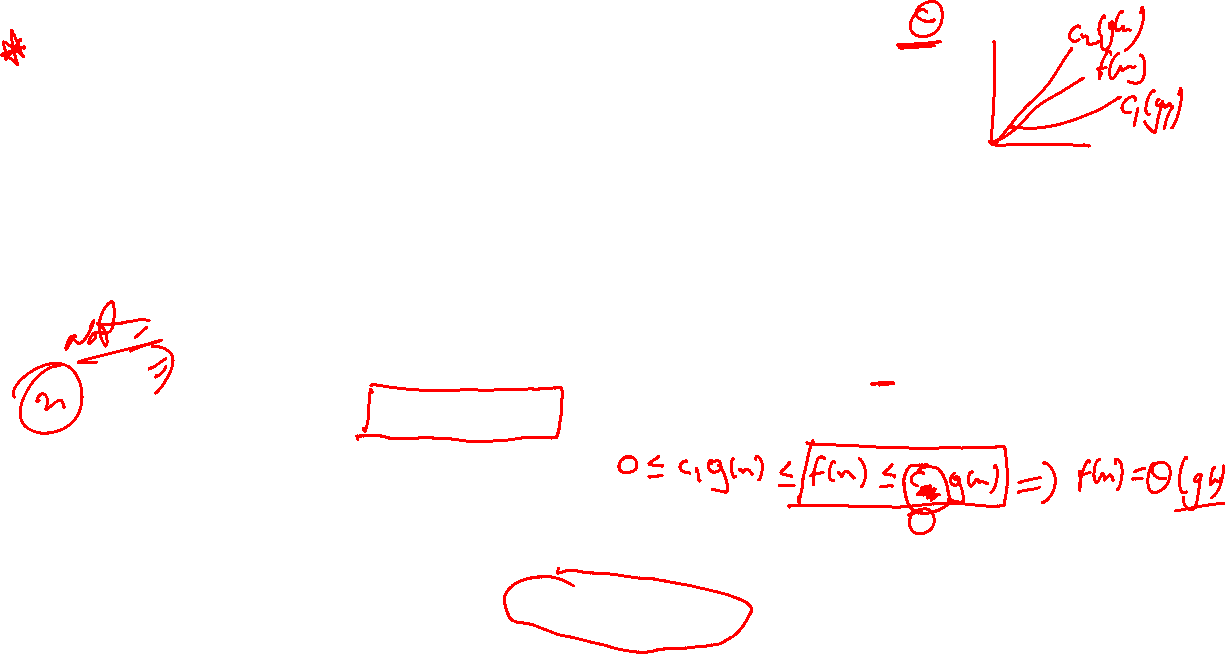 Θ
c₂(g(n))
f(n)
c₁(g(n))
not
n
0 ≤ c₁ g(n) ≤ f(n) ≤ c g(n) ⇒ f(n) = Θ(g(n))